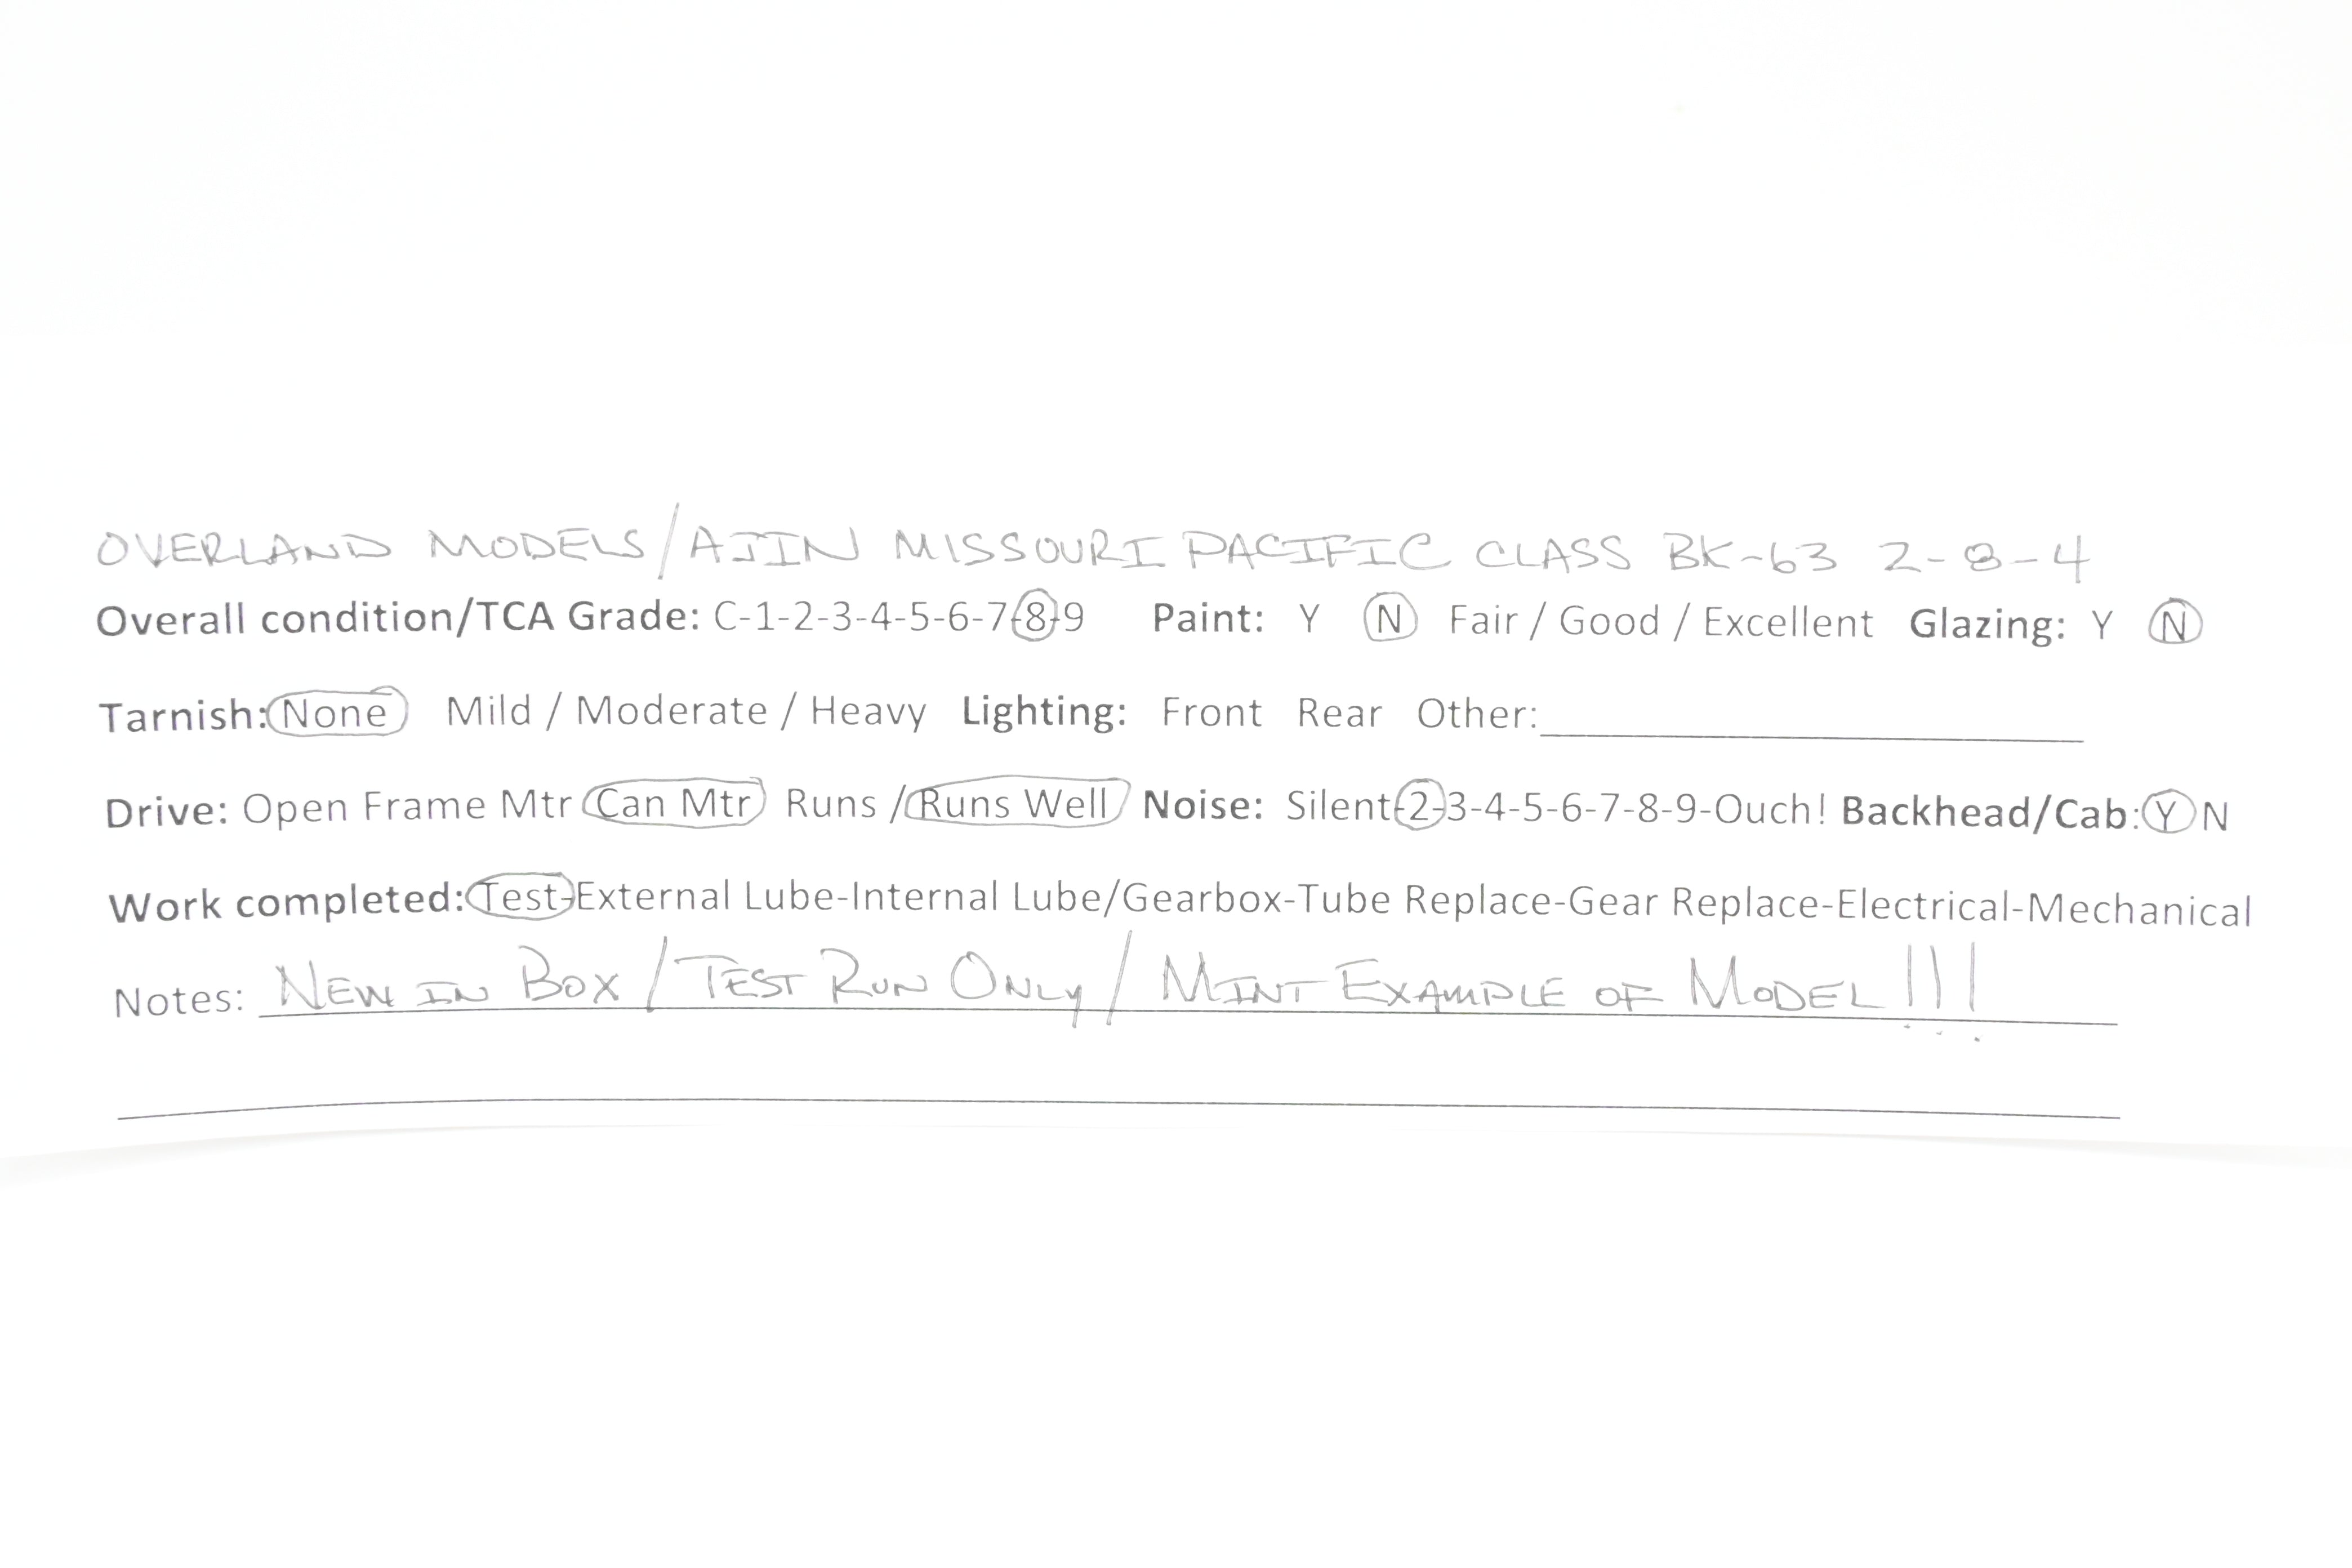 OVERLAND MODELS/AJIN MISSOURI PACIFIC CLASS BK-63 2-8-4
Overall condition/TCA Grade: C-1-2-3-4-5-6-7-8-9 Paint: Y N Fair / Good / Excellent Glazing: Y N
Tarnish: None Mild / Moderate / Heavy Lighting: Front Rear Other:
Drive: Open Frame Mtr Can Mtr Runs / Runs Well Noise: Silent-2-3-4-5-6-7-8-9-Ouch! Backhead/Cab: Y N
Work completed: Test-External Lube-Internal Lube/Gearbox-Tube Replace-Gear Replace-Electrical-Mechanical
Notes: NEW IN BOX / TEST RUN ONLY / MINT EXAMPLE OF MODEL!!!